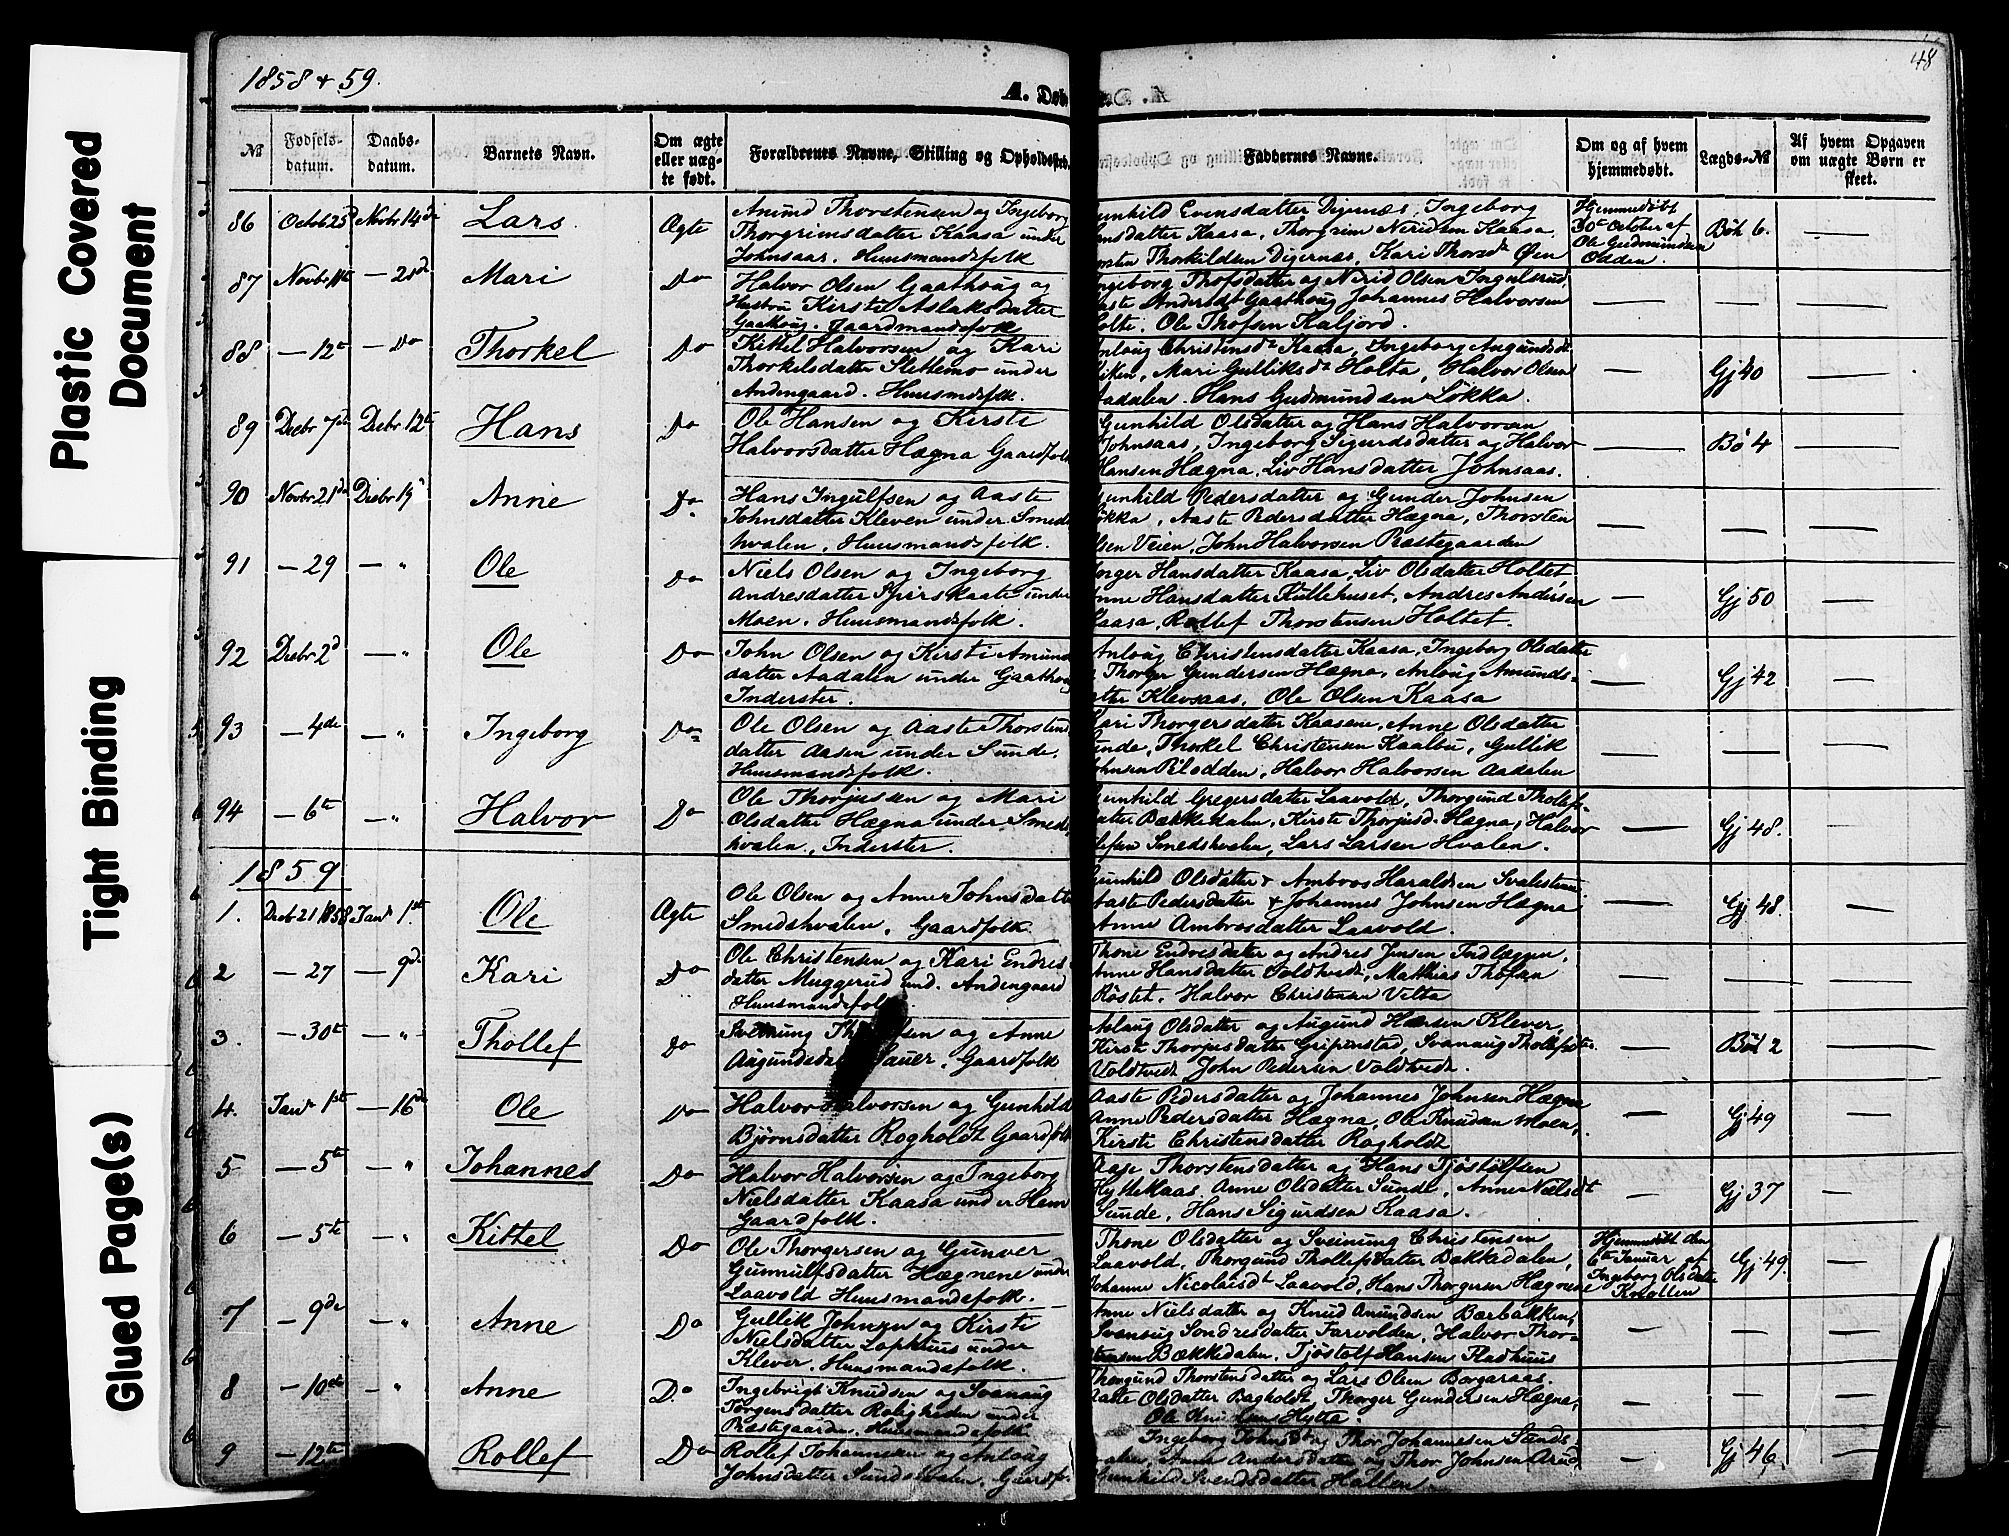 Plastic Covered
Document
Tight Binding
Glued Page(s)
1858 & 59.
A. Døb
48
№
Fødsels-
datum.
Daabs-
datum.
Barnets Navn.
Om ægte
eller uæg-
te født.
Forældrenes Navne, Stilling og Opholdssted.
Faddernes Navne.
Om og af hvem
hjemmedøbt.
Lægds-№
Af hvem Opgaven
om uægte Børn er
skeet.
86 Octob 25d Novbr 14de Lars Ægte
Amund Thorstensen og Ingeborg
Thorgrimsdatter Kaasa under
Johnsaas. Huusmandsfolk
Gunhild Evensdatter Digernæs, Ingeborg
Hansdatter Kaasa, Thorgrim Neridsen Kaasa
Thorsten Thorkildsen Digernæs, Kari Thorsd Øen
Hjemmedøbt
30te October af
Ole Gudmundsen
Oldden.
Bøh 6.
87 Novbr 11te — 21d Mari Do
Halvor Olsen Gaathoug og
Hustru Kirsti Aslaksdatter
Gaathoug. Gaardmandsfolk
Ingeborg Thofsdatter og Nerid Olsen Ingulsrud,
Aaste Andersdt Gaathoug Johannes Halvorsen
Holte. Ole Thofsen Kaljord.
88 — 12te — Do Thorkel Do
Kittel Halvorsen og Kari
Thorkelsdatter Slettemo under
Andengaard. Huusmdsfolk.
Anloug Christensdt Kaasa, Ingeborg Aagundsdt
Viken, Mari Gulliksdt Holta, Halvor Olsen
Aadalen. Hans Gudmundsen Løkka.
Gj 40
89 Decbr 7de Decbr 12te Hans Do
Ole Hansen og Kirsti
Halvorsdatter Hægna Gaardfolk
Gunhild Olsdatter og Hans Halvorsen
Johnsaas, Ingeborg Sigurdsdatter og Halvor
Hansen Hægna, Liv Hansdatter Johnsaas.
Bø 4
90 Novbr 21de Decbr 19 Anne Do
Hans Ingulfsen og Aaste
Johnsdatter Kleven under Smeds
hvalen, Huusmandsfolk.
Gunhild Pedersdatter og Gunder Johnsen
Løkka, Aaste Pedersdatter Hægna, Thorsten
Olsen Veien, John Halvorsen Præstegaarden
91 — 29 — " Ole Do
Niels Olsen og Ingeborg
Andresdatter Spirskaate under
Moen, Huusmandsfolk.
Torger Hansdatter Kaasa, Liv Olsdatter Holtet
Anne Hansdatter Kullehuset, Andres Andersen
Kaasa, Rollef Thorstensen Holtet.
Gj 50
92 Decbr 2d — " Ole Do
John Olsen og Kirsti Amunds
datter Aadalen under Gaathoug
Inderster.
Anloug Christensdatter Kaasa, Ingeborg Olsdatter
Thorger Gundersen Hægna, Anloug Amunds-
datter Klevsaas, Ole Olsen Kaasa
Gj 42
93 — 4de — " Ingeborg Do
Ole Olsen og Aaste Thorstens
datter Aasen under Sunde.
Huusmandsfolk.
Kari Thorgersdatter Kaasene, Anne Olsdatter
Sunde, Thorkel Christensen Kaalbu, Gullik
Johnsen Pilodden, Halvor Halvorsen Aadalen
94 — 6te — " Halvor Do
Ole Thorjussen og Mari
Olsdatter Hægna under Smeds
hvalen, Inderster.
Gunhild Gregersdatter Laavold, Thorgund Tholefs-
datter Bækkedalen, Kirste Thorjusd. Hægna, Halvor
Olefsen Smedshvalen, Lars Larsen Hvalen.
Gj 48.
1859
1. Decb 21 1858 Janr 1st Ole Ægte
Ole Olsen og Anne Johnsdatter
Smedshvalen, Gaardfolk
Gunhild Olsdatter & Ambros Haraldsen
Aaste Pedersdatter & Johannes Johnsen Hægna
Anne Ambrosdatter Laavold.
Gj 48.
2 — 27 — 9de Kari Do
Ole Christensen og Kari Endres
datter Muggerud und. Andengaard
Huusmandsfolk.
Thone Endresdatter og Andres Jensen Indlæggen,
Anne Hansdatter Voldtvedt, Matthias Thofsen
Røstet, Halvor Christensen Velta
3. — 30te — " Thollef Do
Sveinung Th sen og Anne
Augundsd auer, Gaardfolk
Aslaug Olsdatter og Augund Hansen Klever,
Kirste Thorjusdatter Gripensted, Svanaug Tholefsdtr
Voldtvedt John Pedersen Voldtvedt.
Bø 2
4. Janr 1ste — 16de Ole Do
Halvor Halvorsen og Gunhild
Bjørnsdatter Rogholdt Gaardfolk
Aaste Pedersdatter og Johannes Johnsen Hægna
Anne Pedersdatter Hægna, Ole Knudsen Moen,
Kirste Christensdatter Rogholdt
Gj 49
5 — 5te — " Johannes Do
Halvor Halvorsen og Ingeborg
Nielsdatter Kaasa under Hem
Gaardfolk.
Aase Thorstensdatter og Hans Tjøstolfsen
Hytteklaas, Anne Olsdatter Sunde, Anne Nielsdt
Sunde, Hans Sigurdsen Kaasa.
Gj 37
6 — 5te — " Kittel Do
Ole Thorgersen og Gunver
Gunnulfsdatter Hægnene under
Laavold Huusmandsfolk.
Thone Olsdatter og Sveinung Christensen
Laavold, Thorgund Thollefsdatter Bækkedalen,
Johanne Nicolaisdt Laavold, Hans Thorgersen Hægnene
Hjemmedøbt den
6te Januar af
Ingeborg Olsdatter
Knollen
Gj 49.
7 — 9de — " Anne Do
Gullik Johnsen og Kirsti
Nielsdatter Lophuus under
Klever. Huusmandsfolk.
Anne Nielsdatter og Knud Amundsen Bærbakken,
Svanaug Sondresdatter Farvolden, Halvor Thor-
stensen Bækkedalen, Tjøstolf Hansen Raadhuus
8 — 10de — " Anne Do
Ingebrigt Knudsen og Svanaug
Jørgensdatter Roligheden under
Præstegaarden. Huusmandsfolk
Thorgund Thorstensdatter og Lars Olsen Borgaraas.
Aaste Olsdatter Bagholdt Thorger Gundersen Hægna,
Ole Knudsen Hytta.
9 — 12te Rollef Do
Rollef Johannesen og Anloug
Johnsdatter Sundshvalen. Gaardf.
Ingeborg Johnsdt og Thor Johannesen Sunds
hvalen, Anne Andersdatter og Thor Johnsen Aarud,
Gunhild Svendsdatter Hallen.
Gj 46